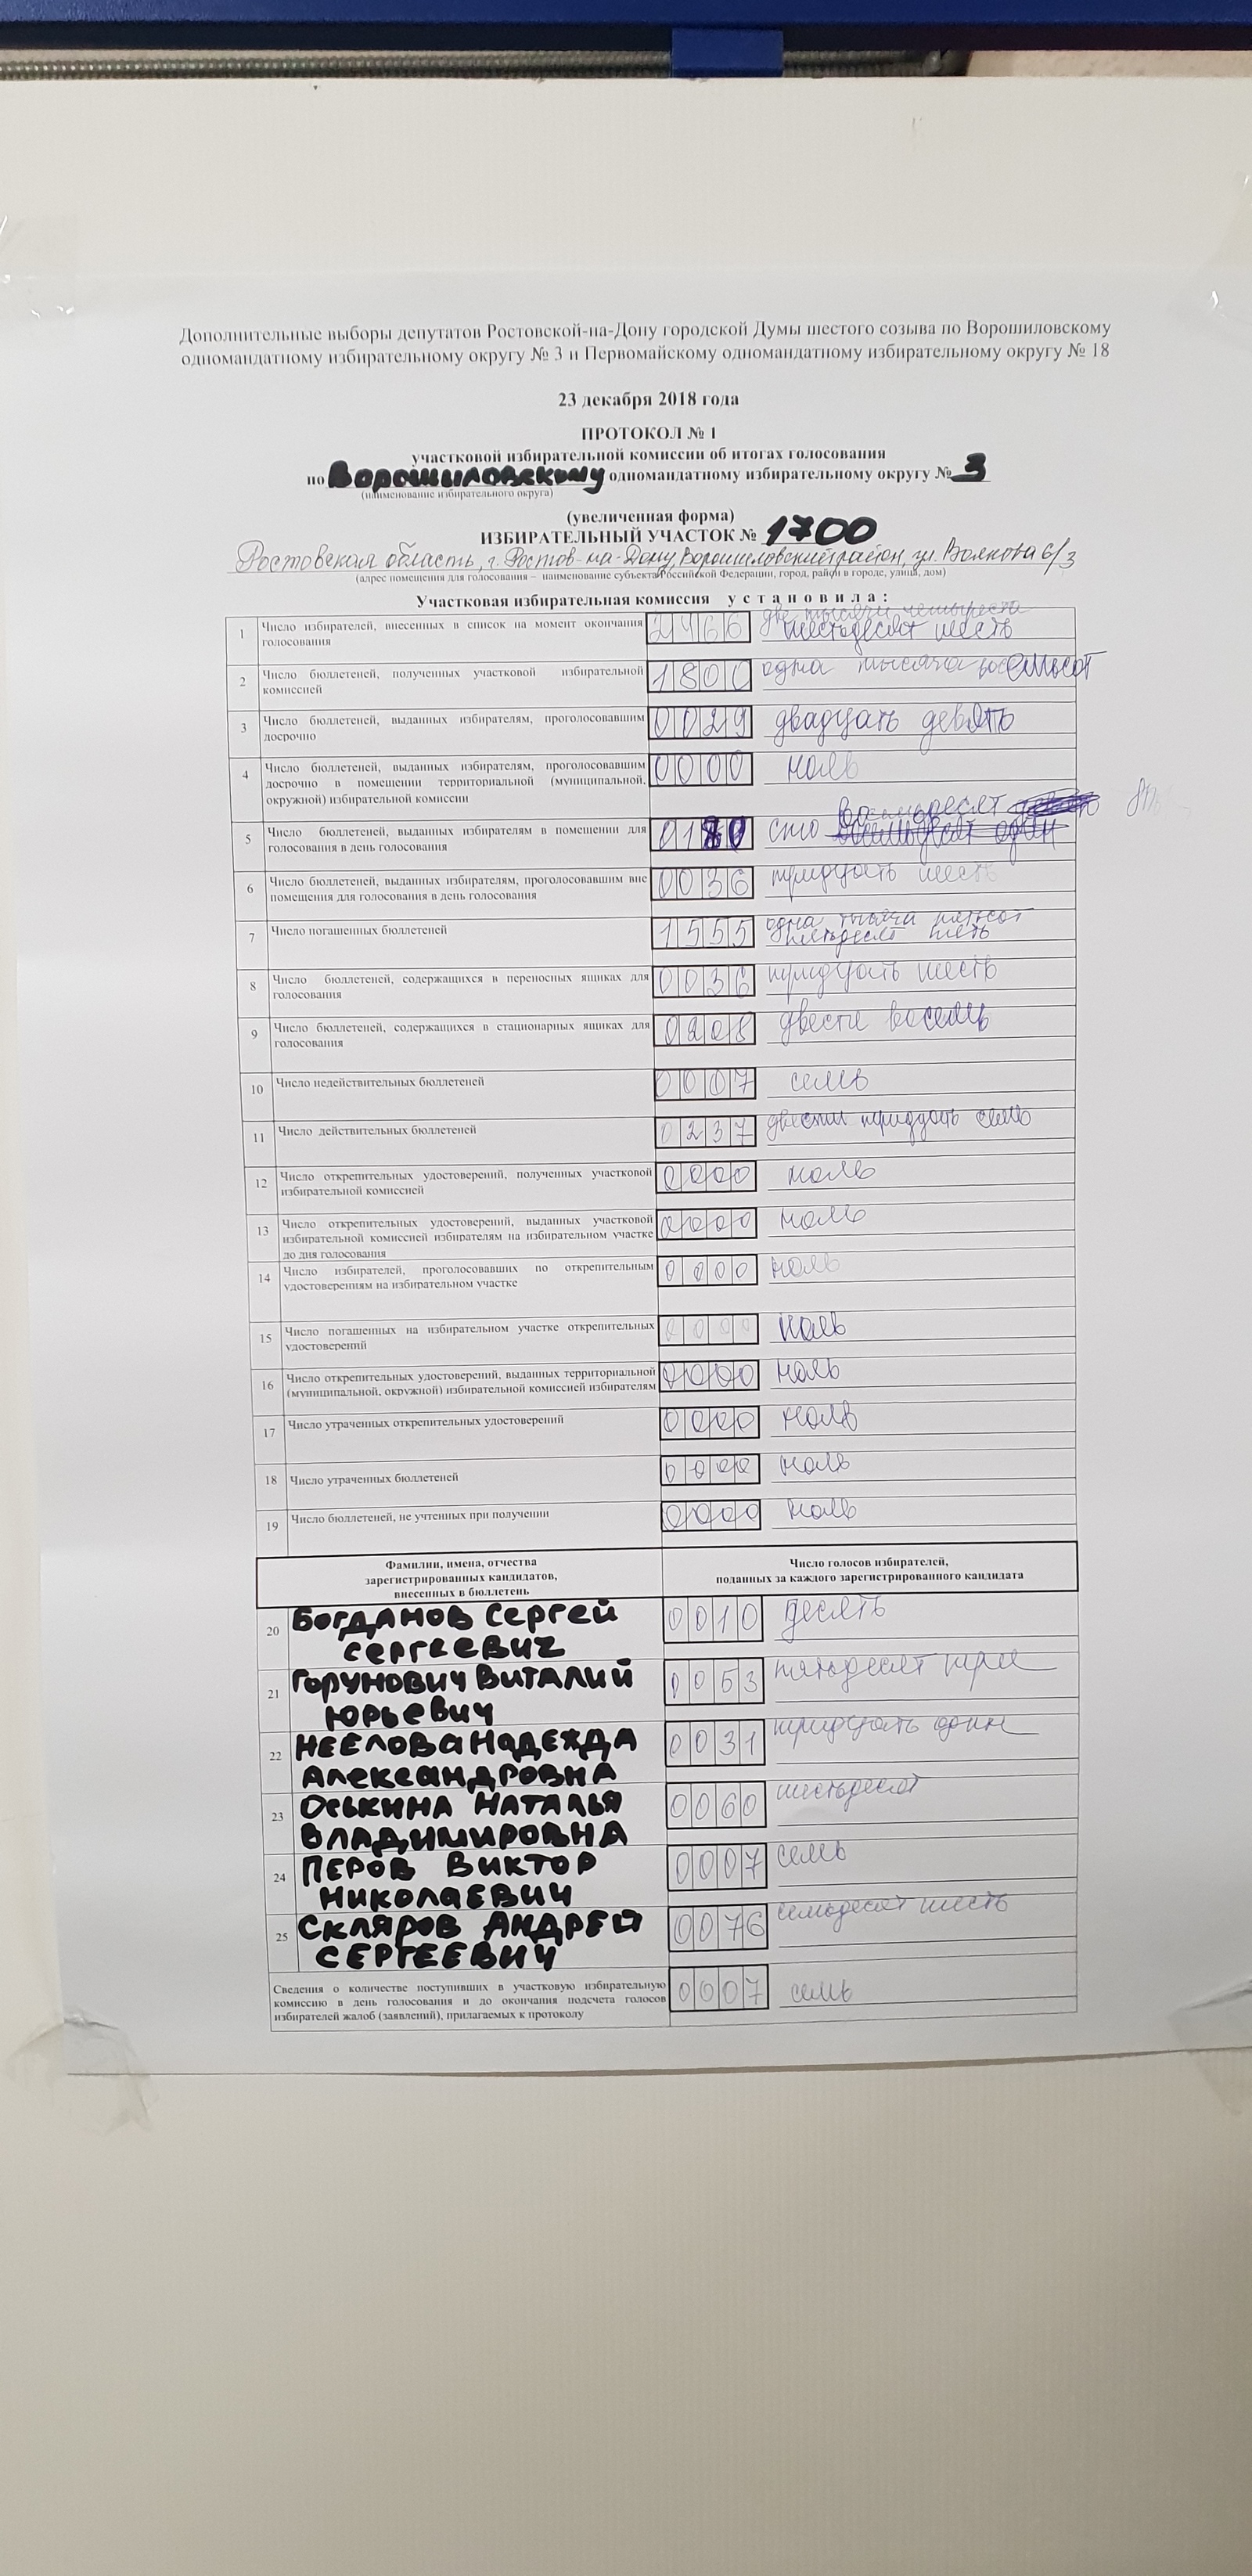 Дополнительные выборы депутатов Ростовской-на-Дону городской Думы шестого созыва по Ворошиловскому
одномандатному избирательному округу № 3 и Первомайскому одномандатному избирательному округу № 18
23 декабря 2018 года
ПРОТОКОЛ № 1
участковой избирательной комиссии об итогах голосования
по Ворошиловскому одномандатному избирательному округу № 3
(наименование избирательного округа)
(увеличенная форма)
ИЗБИРАТЕЛЬНЫЙ УЧАСТОК № 1700
Ростовская область, г. Ростов-на-Дону, Ворошиловский район, ул. Волкова 6/3
(адрес помещения для голосования – наименование субъекта Российской Федерации, город, район в городе, улица, дом)
Участковая избирательная комиссия установила:
две тысячи четыреста
1 Число избирателей, внесенных в список на момент окончания 2466 шестьдесят шесть
голосования
2 Число бюллетеней, полученных участковой избирательной 1800 одна тысяча восемьсот
комиссией
3 Число бюллетеней, выданных избирателям, проголосовавшим 0029 двадцать девять
досрочно
4 Число бюллетеней, выданных избирателям, проголосовавшим 0000 ноль
досрочно в помещении территориальной (муниципальной,
окружной) избирательной комиссии
восемьдесят
5 Число бюллетеней, выданных избирателям в помещении для 0180 сто
голосования в день голосования
6 Число бюллетеней, выданных избирателям, проголосовавшим вне 0036 тридцать шесть
помещения для голосования в день голосования
7 Число погашенных бюллетеней 1555 одна тысяча пятьсот
пятьдесят пять
8 Число бюллетеней, содержащихся в переносных ящиках для 0036 тридцать шесть
голосования
9 Число бюллетеней, содержащихся в стационарных ящиках для 0208 двести восемь
голосования
10 Число недействительных бюллетеней 0007 семь
11 Число действительных бюллетеней 0237 двести тридцать семь
12 Число открепительных удостоверений, полученных участковой 0000 ноль
избирательной комиссией
13 Число открепительных удостоверений, выданных участковой 0000 ноль
избирательной комиссией избирателям на избирательном участке
до дня голосования
14 Число избирателей, проголосовавших по открепительным 0000 ноль
удостоверениям на избирательном участке
15 Число погашенных на избирательном участке открепительных 0000 ноль
удостоверений
16 Число открепительных удостоверений, выданных территориальной 0000 ноль
(муниципальной, окружной) избирательной комиссией избирателям
17 Число утраченных открепительных удостоверений 0000 ноль
18 Число утраченных бюллетеней 0000 ноль
19 Число бюллетеней, не учтенных при получении 0000 ноль
Фамилии, имена, отчества
зарегистрированных кандидатов,
внесенных в бюллетень
Число голосов избирателей,
поданных за каждого зарегистрированного кандидата
20 Богданов Сергей 0010 десять
Сергеевич
21 Горунович Виталий 0053 пятьдесят три
Юрьевич
22 Неелова Надежда 0031 тридцать один
Александровна
23 Оськина Наталья 0060 шестьдесят
Владимировна
24 Перов Виктор 0007 семь
Николаевич
25 Скляров Андрей 0076 семьдесят шесть
Сергеевич
Сведения о количестве поступивших в участковую избирательную 0007 семь
комиссию в день голосования и до окончания подсчета голосов
избирателей жалоб (заявлений), прилагаемых к протоколу